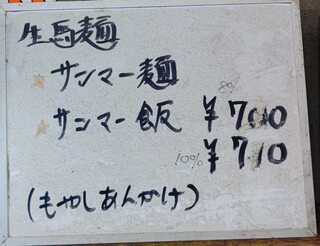 生馬麺
サンマー麺
8%
サンマー飯 ¥700
10% ¥710
(もやしあんかけ)